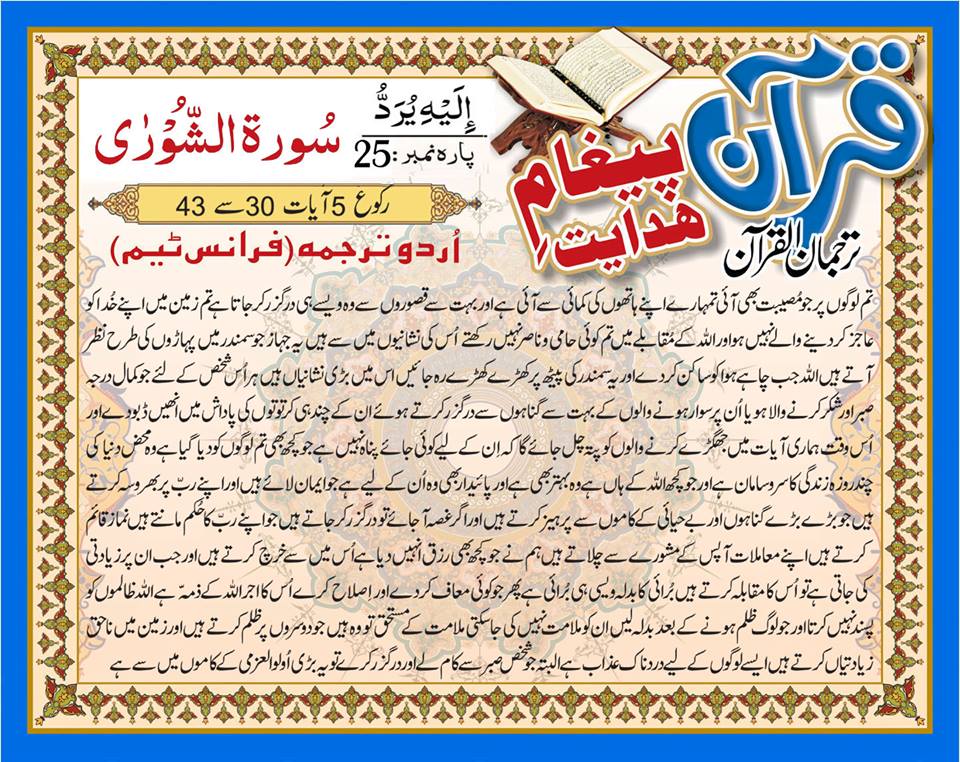 قرآن
پیغامِ
ھدایت
ترجمان القرآن
إِلَيْهِ يُرَدُّ
پارہ نمبر: 25
سُورة الشُّوْرٰی
رکوع 5 آیات 30 سے 43
اُردو ترجمہ (فرانس ٹیم)
تم لوگوں پر جو مُصیبت بھی آئی تمہارے اپنے ہاتھوں کی کمائی سے آئی ہے اور بہت سے قصوروں سے وہ ویسے ہی درگزر کر جاتا ہے تم زمین میں اپنے خُدا کو
عاجز کر دینے والے نہیں ہو اور اللہ کے مُقابلے میں تم کوئی حامی و ناصر نہیں رکھتے اُس کی نشانیوں میں سے ہیں یہ جہاز جو سمندر میں پہاڑوں کی طرح نظر
آتے ہیں اللہ جب چاہے ہوا کو ساکن کر دے اور یہ سمندر کی پیٹھ پر کھڑے کھڑے رہ جائیں اس میں بڑی نشانیاں ہیں ہر اُس شخص کے لئے جو کمال درجہ
صبر اور شکر کرنے والا ہو یا اُن پر سوار ہونے والوں کے بہت سے گناہوں سے درگزر کرتے ہوئے ان کے چند ہی کرتوتوں کی پاداش میں انھیں ڈبو دے اور
اُس وقت ہماری آیات میں جھگڑے کرنے والوں کو پتہ چل جائے گا کہ اِن کے لیے کوئی جائے پناہ نہیں ہے جو کچھ بھی تم لوگوں کو دیا گیا ہے وہ محض دنیا کی
چند روزہ زندگی کا سر و سامان ہے اور جو کچھ اللہ کے ہاں ہے وہ بہتر بھی ہے اور پائیدار بھی وہ اُن کے لیے ہے جو ایمان لائے ہیں اور اپنے ربّ پر بھروسہ کرتے
ہیں جو بڑے بڑے گناہوں اور بے حیائی کے کاموں سے پرہیز کرتے ہیں اور اگر غصہ آ جائے تو درگزر کر جاتے ہیں جو اپنے ربّ کا حُکم مانتے ہیں نماز قائم
کرتے ہیں اپنے معاملات آپس کے مشورے سے چلاتے ہیں ہم نے جو کچھ بھی رزق انہیں دیا ہے اُس میں سے خرچ کرتے ہیں اور جب ان پر زیادتی
کی جاتی ہے تو اُس کا مقابلہ کرتے ہیں بُرائی کا بدلہ ویسی ہی بُرائی ہے پھر جو کوئی معاف کر دے اور اِصلاح کرے اُس کا اجر اللہ کے ذمہ ہے اللہ ظالموں کو
پسند نہیں کرتا اور جو لوگ ظلم ہونے کے بعد بدلہ لیں ان کو ملامت نہیں کی جا سکتی ملامت کے مستحق تو وہ ہیں جو دوسروں پر ظلم کرتے ہیں اور زمین میں ناحق
زیادتیاں کرتے ہیں ایسے لوگوں کے لیے دردناک عذاب ہے البتہ جو شخص صبر سے کام لے اور درگزر کرے تو یہ بڑی اُولوالعزمی کے کاموں میں سے ہے